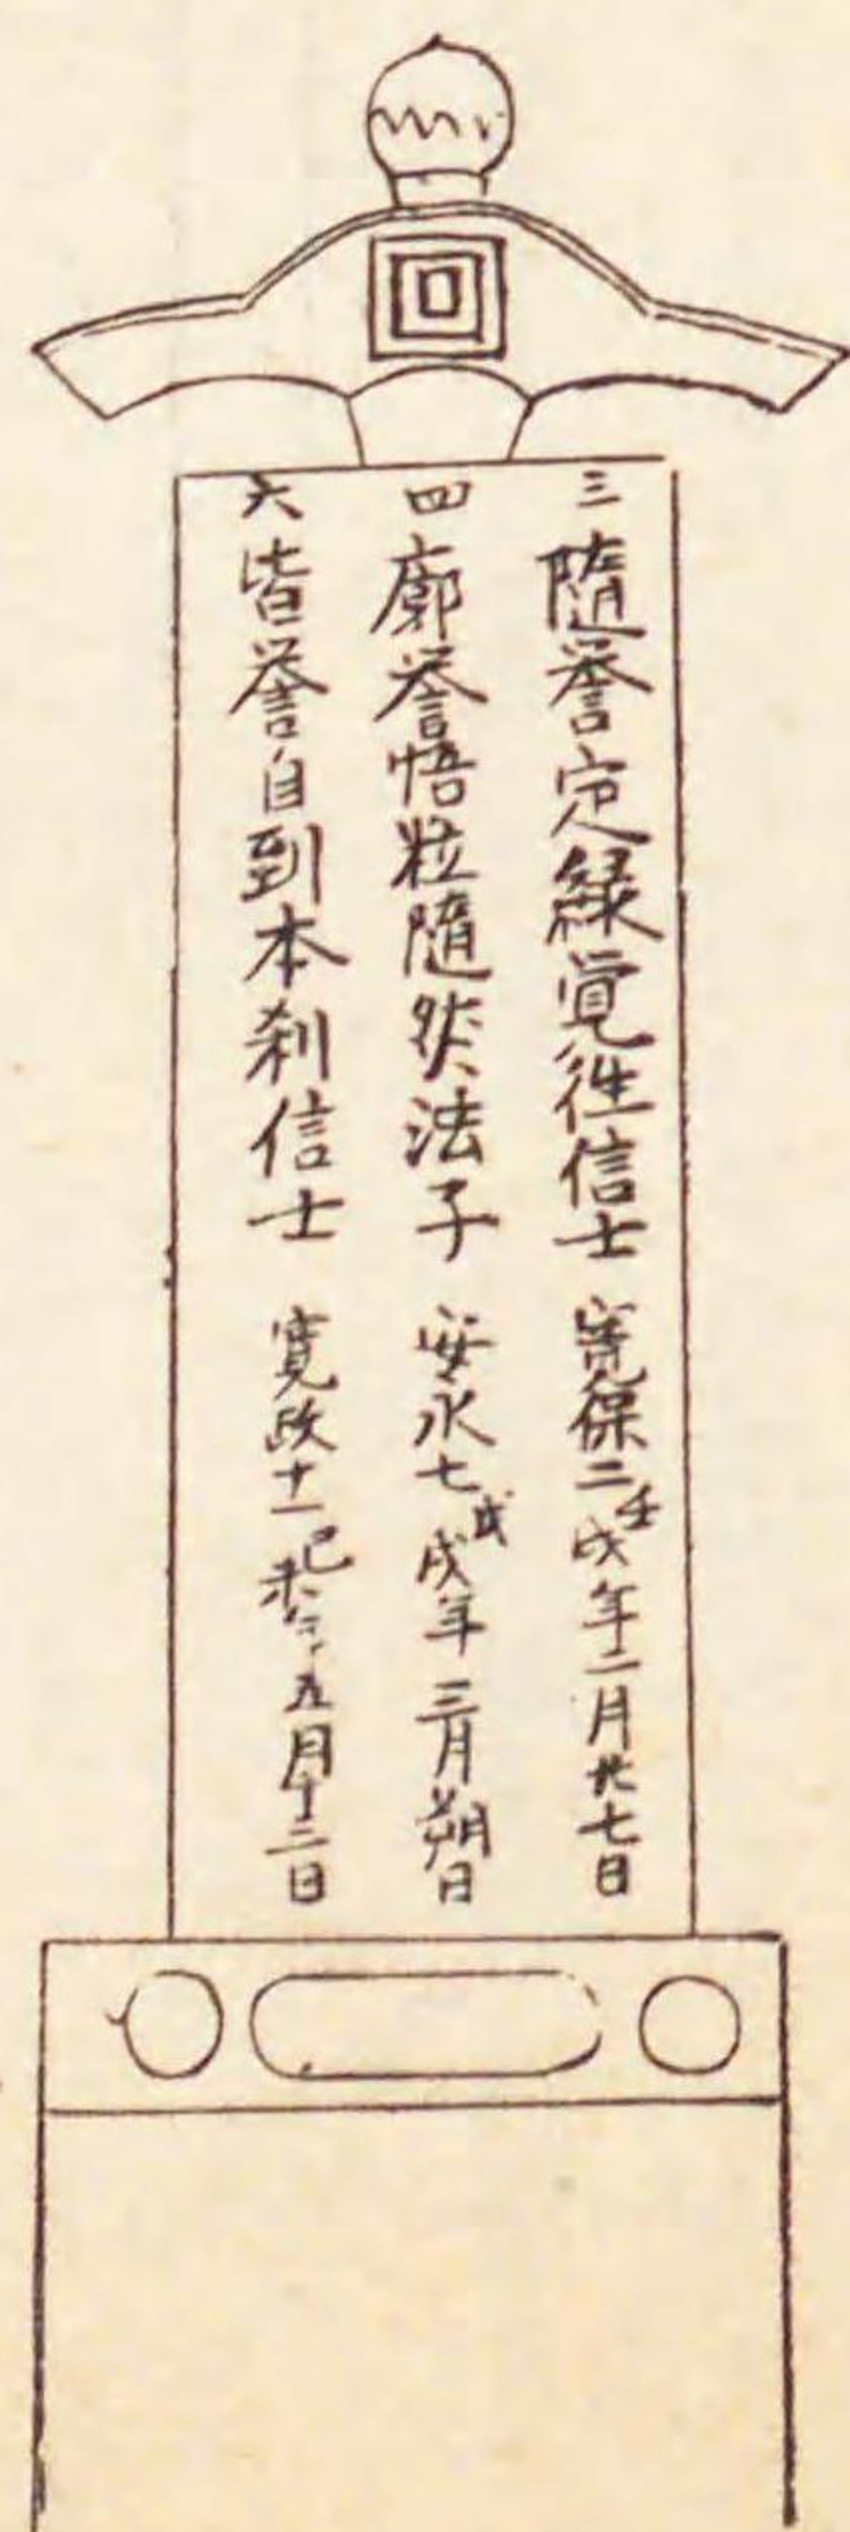 三 隨誉定緑覚往信士 寛保二壬戌年二月廿七日
四 廓誉悟粒隨然法子 安永七戊戌年三月朔日
六 皆誉自到本刹信士 寛政十一己未年五月十二日